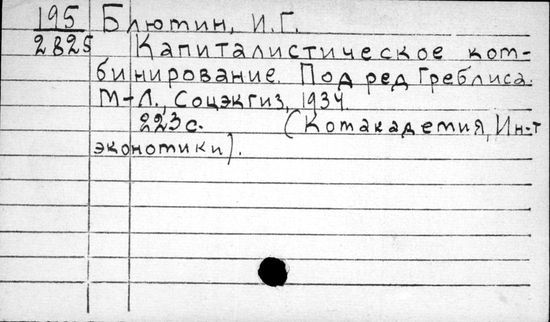 195 Блютин, И.Г.
2825 Капиталистическое ком-
бинирование. Под ред Греблиса.
М-Л., Соцэкгиз, 1934.
223с. (Комакадемия, Ин-т
экономики).